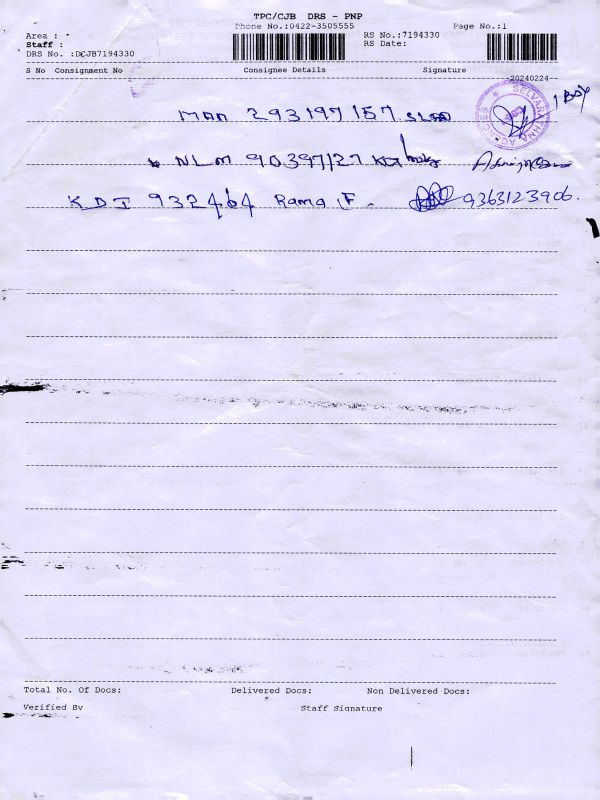 TPC/CJB DRS - PNP
Phone No.:0422-3505555 Page No.:1
Area : RS No.:7194330
Staff : RS Date:
DRS No. :DCJB7194330
S No Consignment No Consignee Details Signature
20240224
MAA 293197157
1 Box
NLM 90397127
KDI 932464 Rama F. 9363123906.
Total No. Of Docs: Delivered Docs: Non Delivered Docs:
Verified By Staff Signature